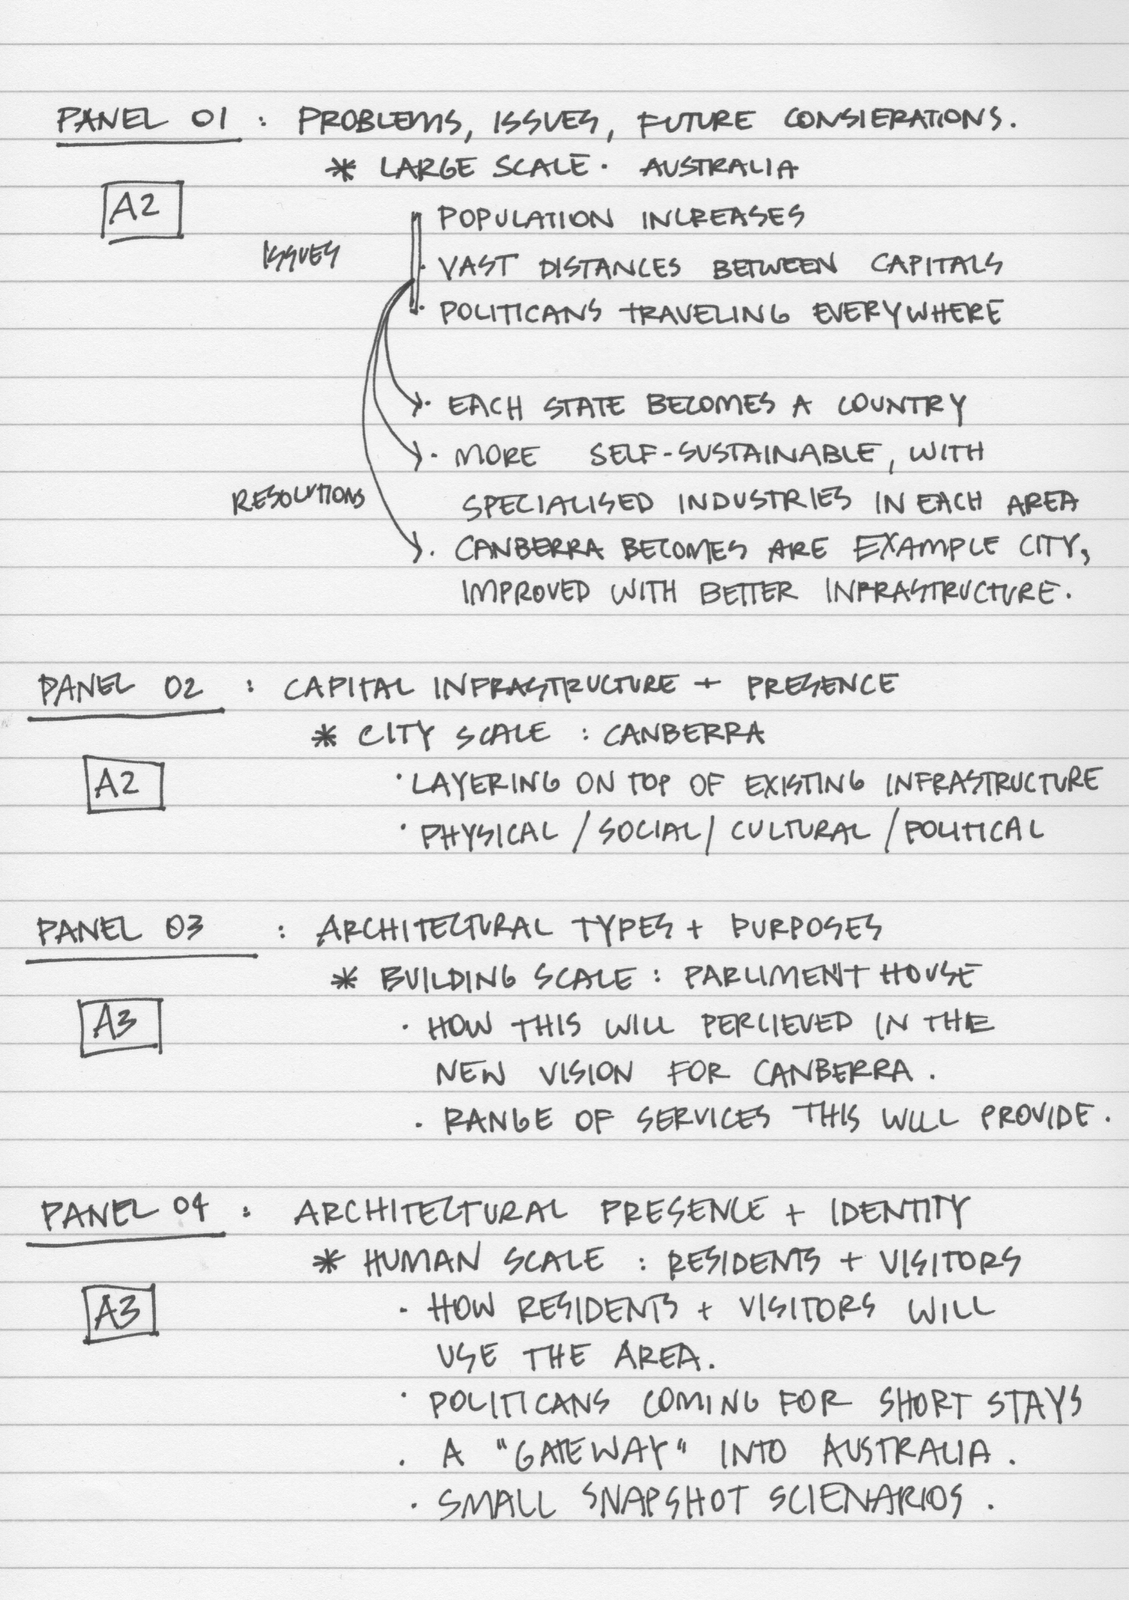 PANEL 01 : PROBLEMS, ISSUES, FUTURE CONSIERATIONS.
* LARGE SCALE · AUSTRALIA
A2
· POPULATION INCREASES
ISSUES
· VAST DISTANCES BETWEEN CAPITALS
· POLITICANS TRAVELING EVERYWHERE
· EACH STATE BECOMES A COUNTRY
· MORE SELF-SUSTAINABLE, WITH
RESOLUTIONS
SPECIALISED INDUSTRIES IN EACH AREA
· CANBERRA BECOMES ARE EXAMPLE CITY,
IMPROVED WITH BETTER INFRASTRUCTURE.
PANEL 02 : CAPITAL INFRASTRUCTURE + PRESENCE
* CITY SCALE : CANBERRA
A2
· LAYERING ON TOP OF EXISTING INFRASTRUCTURE
· PHYSICAL / SOCIAL / CULTURAL / POLITICAL
PANEL 03 : ARCHITECTURAL TYPES + PURPOSES
* BUILDING SCALE : PARLIMENT HOUSE
A3
· HOW THIS WILL PERCIEVED IN THE
NEW VISION FOR CANBERRA.
· RANGE OF SERVICES THIS WILL PROVIDE.
PANEL 04 : ARCHITECTURAL PRESENCE + IDENTITY
* HUMAN SCALE : RESIDENTS + VISITORS
A3
· HOW RESIDENTS + VISITORS WILL
USE THE AREA.
· POLITICANS COMING FOR SHORT STAYS
· A "GATEWAY" INTO AUSTRALIA.
· SMALL SNAPSHOT SCIENARIOS.